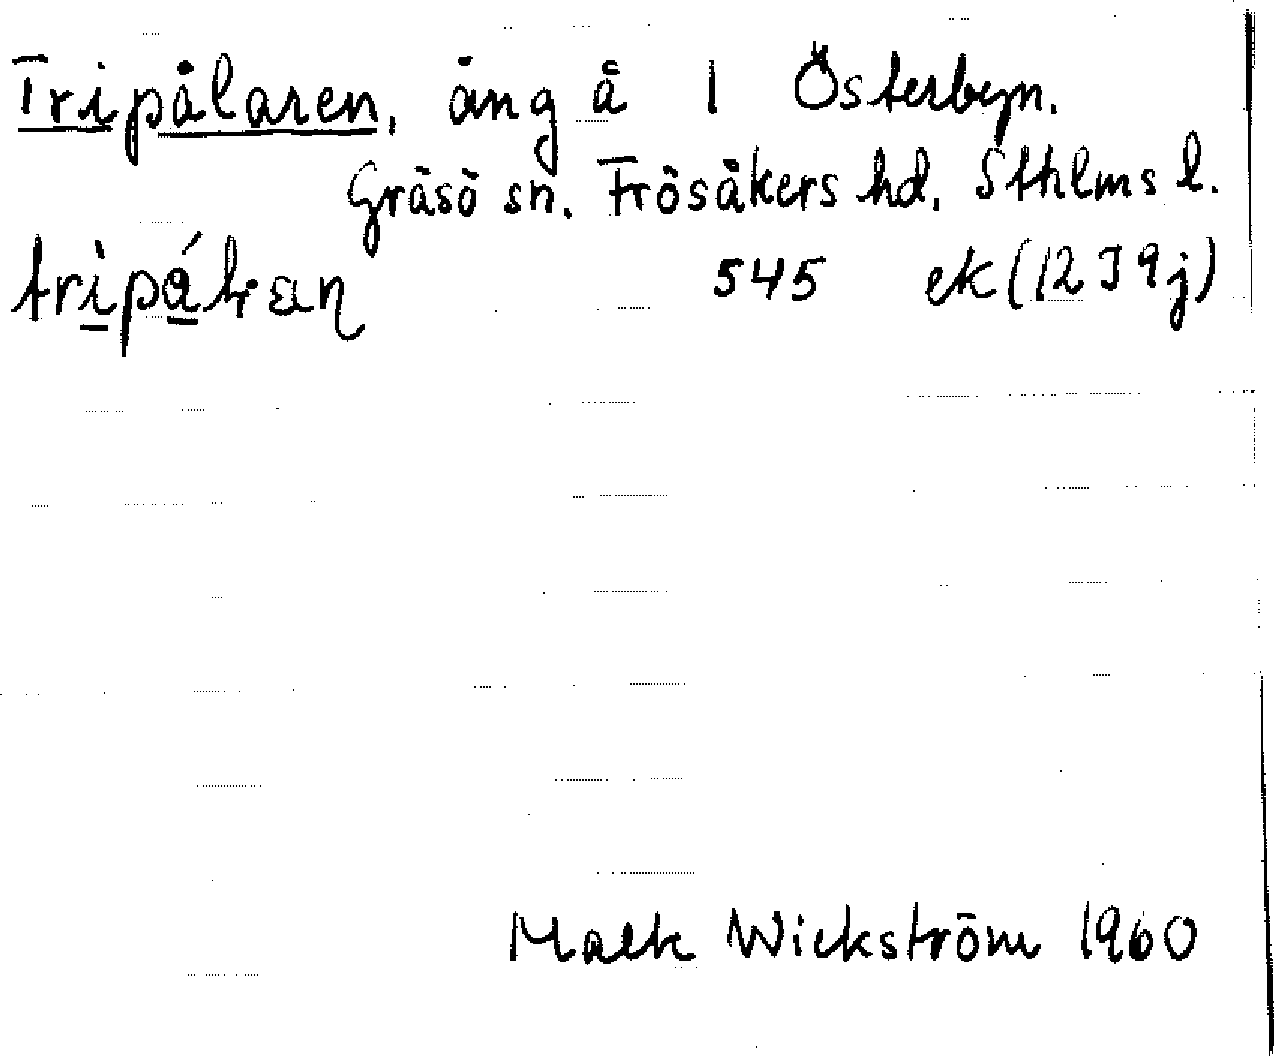 Tripålaren, äng å 1 Österbyn.
Gräsö sn. Frösåkers hd. Sthlms l.
545 ek (12 I 9 j)
Wickström 1960